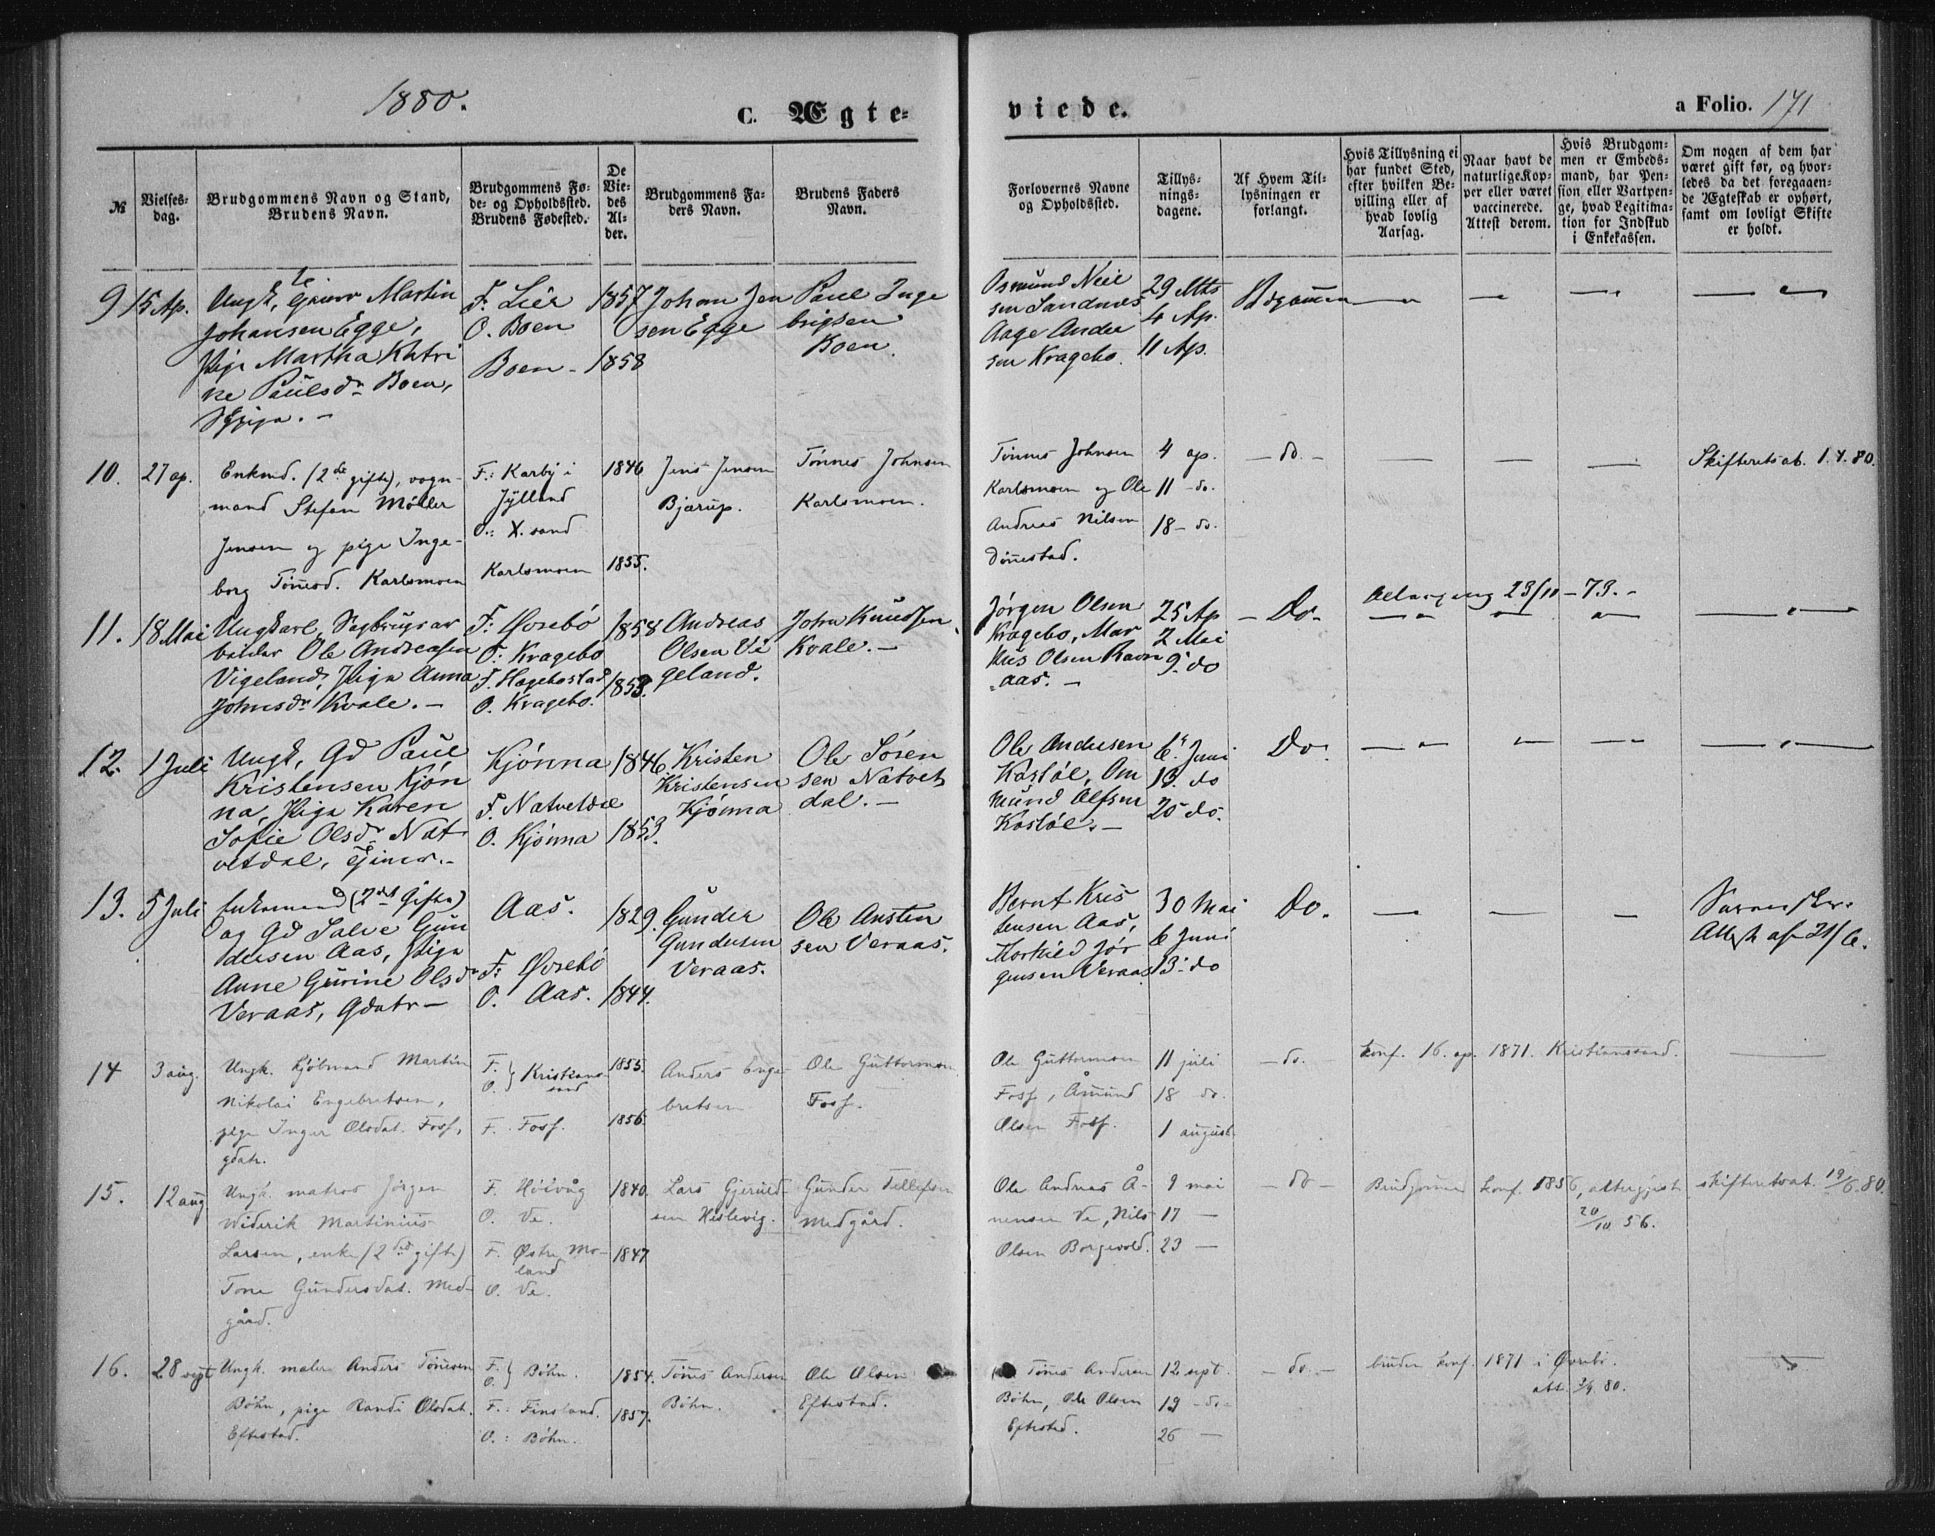 1880.
C. Ægte-
viede.
a Folio. 171
№
Vielses-
dag.
Brudgommens Navn og Stand,
Brudens Navn.
Brudgommens Fø-
de- og Opholdssted.
Brudens Fødested.
De
Vie-
des
Al-
der.
Brudgommens Fa-
ders Navn.
Brudens Faders
Navn.
Forlovernes Navne
og Opholdssted.
Tillys-
nings-
dagene.
Af Hvem Til-
lysningen er
forlangt.
Hvis Tillysning ei
har fundet Sted,
efter hvilken Be-
villing eller af
hvad lovlig
Aarsag.
Naar havt de
naturlige Kop-
per eller været
vaccinerede.
Attest derom.
Hvis Brudgom-
men er Embeds-
mand, har Pen-
sion eller Vartpen-
ge, hvad Legitima-
tion for Indskud
i Enkekassen.
Om nogen af dem har
været gift før, og hvor-
ledes da det foregaaen-
de Ægteskab er ophørt,
samt om lovligt Skifte
er holdt.
9
15 Ap.
Ungk, Martin
Johansen Egge,
Pige Martha Katri
ne Paulsdr Boen,
F. Lier
O. Boen
Boen -
1857
1858
Johan Jen
sen Egge
Paul Inge
brigtsen
Boen.
Osmund Neil
sen Sandnes
Aage Ander
sen Kragebo.
29 Mts
4 Ap.
11 Ap.
Bdgommen
10.
27 ap.
Enkmd. (2de gifte), vogn-
mand Stefan Møller
Jensen og pige Inge-
borg Tønnesd. Karlsmoen
F: Karby i
Jylland
O: X.sand
Karlsmoen
1846
1855.
Jens Jensen
Bjærup.
Tønnes Johnsen
Karlsmoen.
Tønnes Johnsen
Karlsmoen og Ole
Andreas Nilsen
Dønnestad.
4 ap.
11 - do.
18 - do.
- do. -
Skifteretsat. 1.4.80.
11.
18 Mai
Ungkarl, Sagbrugsar
beider Ole Andreasen
Vigeland, Pige Anna
Johnsdr Kvale. -
F: Øvrebø
O: Kragebo
F. Hægebostad
O. Kragebo.
1858
1853.
Andreas
Olsen Vi
geland.
John Knudsen
Kvale. -
Jørgen Olsen
Kragebo, Mar
kus Olsen Ravn
aas. -
25 Ap
2 Mai
9. do
- Do -
23/11 - 73. -
12.
1 Juli
Ungk, Gd Paul
Kristensen Kjøn
na, Pige Karen
Sofie Olsdr Nat
vetdal,
Kjønna
F. Natvetdal
O. Kjønna
1846
1853.
Kristen
Kristensen
Kjønna
Ole Søren
sen Natvet
dal. -
Ole Andersen
Kostøl, Om
mund Olfsen
Kostøl. -
6. Juni
13. do
20 do.
Do.
13.
5 Juli
Enkemand (2det Gifte)
og Gd Salve Gun
dersen Aas, Pige
Anne Gurine Olsdr
Veraas, Gdatr -
Aas.
F: Øvrebø
O. Aas.
1829.
1844.
Gunder
Gundersen
Veraas.
Ole Austen
sen Veraas.
Bernt Kris
tensen Aas,
Jør
gensen Veraas
30 Mai
6 Juni
13. do
Do.
Attest af 21/6.
14
3 aug.
Ungk. Kjøbmand Martin
Nikolai Engebretsen,
pige Inger Olsdat. Foss,
gdatr.
F.
O. } Kristians-
sand
F. Foss.
1855.
1856.
Anders Enge-
bretsen
Ole Guttormsen
Foss.
Ole Guttormsen
Foss, Åmund
Olsen Foss.
11 juli
18 do.
1 august.
- do.
konf. 16. ap. 1871. Kristianssand.
15.
12 aug
Ungk. matros Jørgen
Widerik Martinius
Larsen, enke (2det gifte)
Tone Gundersdat. Med-
gård.
F. Høivåg
O. Ve.
F. Østre Mo-
land
O. Ve.
1840.
1847
Lars Gjeruld-
sen Heslevig.
Gunder Tellefsen
Medgård.
Ole Andreas Å-
nensen Ve, Nils
Olsen Borgevold.
9 mai
17 -
23 -
- do -
Brudgommen konf. 1856, altergjest
20/10 56.
skifteretsat. 19/6.80.
16.
28 sept
Ungk. maler Anders Tønnesen
Bøhn, pige Randi Olsdat.
Eftestad.
F.
O. } Bøhn.
F.: Finsland.
O.: Bøhn.
1854.
1857.
Tønnes Andersen
Bøhn.
Ole Olsen
Eftestad.
Tønnes Andersen
Bøhn, Ole Olsen
Eftestad.
12 sept.
19 - do -
26 -
- do. -
bruden konf. 1871 i Øvrebø.
att. 3/9. 80.